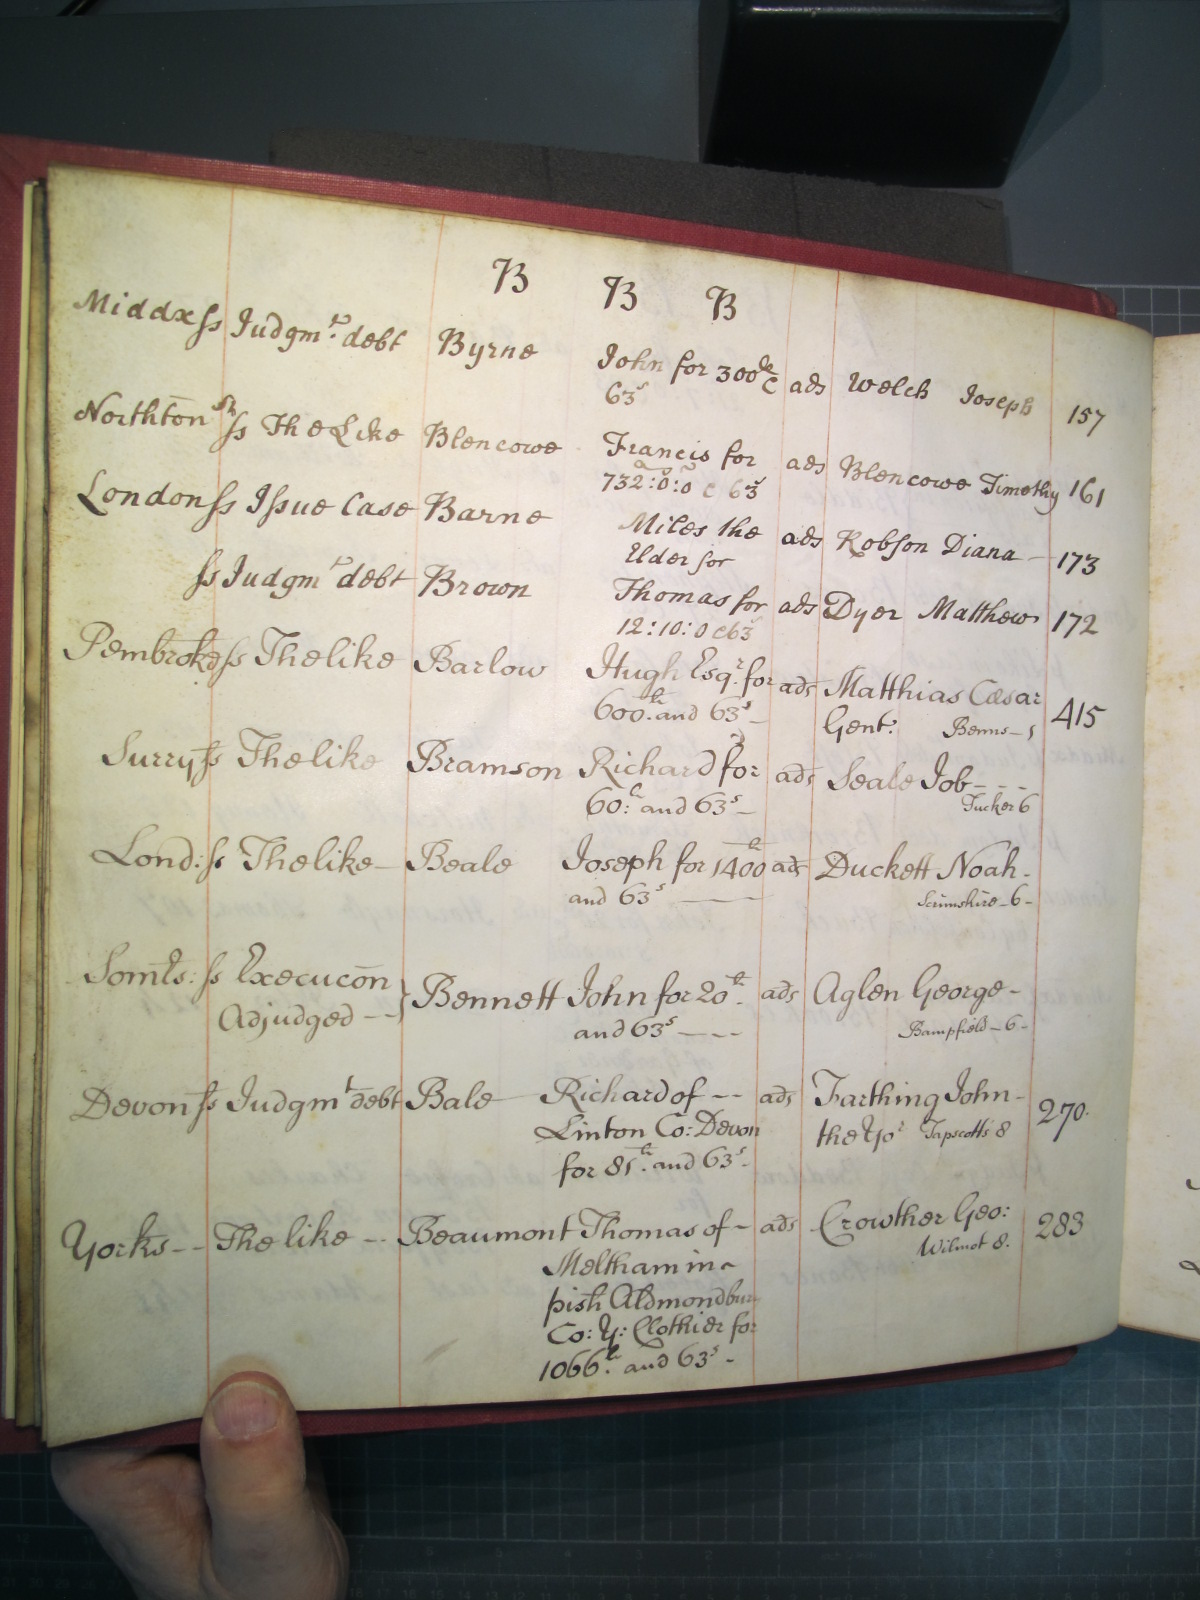 B B B
Middx ss Judgmt. debt Byrne John for 300li & ads Welch Joseph 157
63s
Northton sh ss The Like Blencowe Francis for ads Blencowe Timothy 161
732:0:0 & 63s
London ss Issue Case Barne Miles the ads Robson Diana 173
Elder for
ss Judgmt debt Brown Thomas for ads Dyer Matthew 172
12:10:0 & 63s
Pembroke ss The like Barlow Hugh Esqr. for ads Matthias Cæsar 415
600li. and 63s Gent:
Surry ss The like Bramson Richard for ads Seale Job
60li: and 63s Tucker 6
Lond: ss The like Beale Joseph for 1400li ads Duckett Noah
and 63s Scrimshire 6
Somts: ss Execucōn Bennett John for 20li. ads Aglen George
Adjudged and 63s Bampfield 6
Devon ss Judgmt debt Bale Richard of ads Farthing John 270
Linton Co: Devon the Yor Tapscotts 8
for 81li. and 63s
Yorks The like Beaumont Thomas of ads Crowther Geo: 283
Meltham in Wilmot 8.
pish Aldmondbury
Co: Y: Clothier for
1066li. and 63s